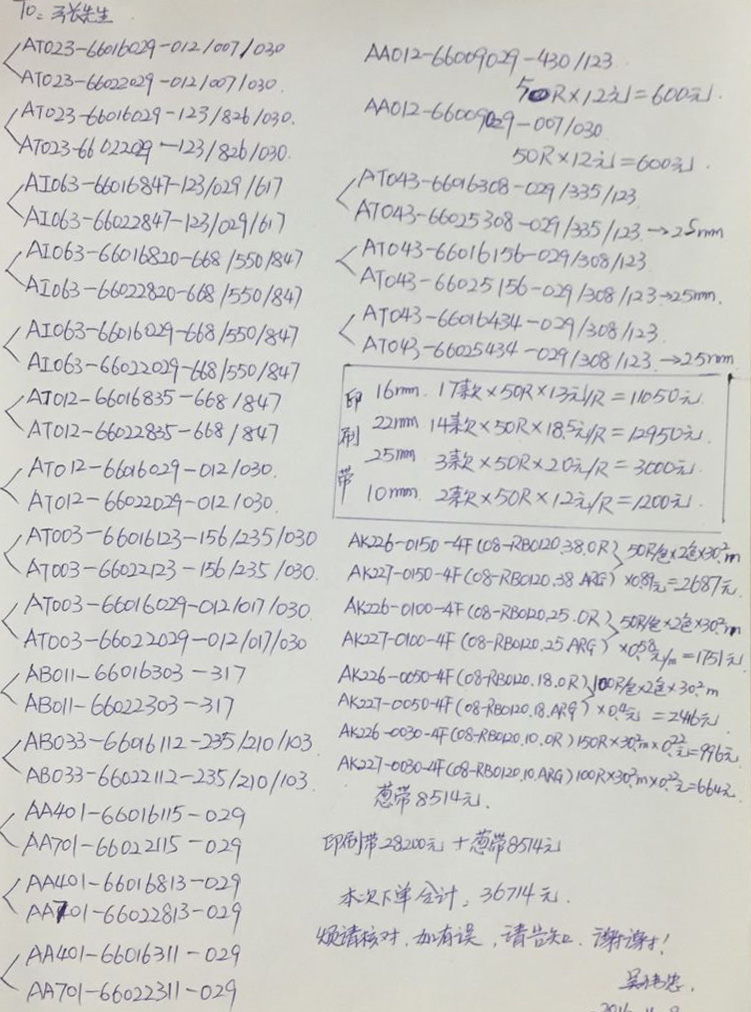 To: 张先生
AT023-66016029-012/007/030
AT023-66022029-012/007/030.
AT023-66016029-123/826/030.
AT023-66022029-123/826/030.
AI063-66016847-123/029/617
AI063-66022847-123/029/617
AI063-66016820-668/550/847
AI063-66022820-668/550/847
AI063-66016029-668/550/847
AI063-66022029-668/550/847
AT012-66016835-668/847
AT012-66022835-668/847
AT012-66016029-012/030.
AT012-66022029-012/030.
AT003-66016123-156/235/030
AT003-66022123-156/235/030.
AT003-66016029-012/017/030
AT003-66022029-012/017/030
AB011-66016303-317
AB011-66022303-317
AB033-66016112-235/210/103
AB033-66022112-235/210/103.
AA401-66016115-029
AA701-66022115-029
AA401-66016813-029
AA701-66022813-029
AA401-66016311-029
AA701-66022311-029
AA012-66009029-430/123
50R×12元=600元.
AA012-66009029-007/030
50R×12元=600元.
AT043-66016308-029/335/123
AT043-66025308-029/335/123→25mm
AT043-66016156-029/308/123
AT043-66025156-029/308/123→25mm.
AT043-66016434-029/308/123.
AT043-66025434-029/308/123.→25mm
印刷带
16mm. 17款×50R×13元/R=11050元
22mm 14款×50R×18.5元/R=12950元.
25mm 3款×50R×20元/R=3000元.
10mm. 2款×50R×12元/R=1200元.
AK226-0150-4F(08-RB0120.38.OR) 50R/色×2色×30.2m
AK227-0150-4F(08-RB0120.38.ARG) ×0.89元=2687元.
AK226-0100-4F(08-RB0120.25.OR) 50R/色×2色×30.2m
AK227-0100-4F(08-RB0120.25.ARG) ×0.58元/m=1751元
AK226-0050-4F(08-RB0120.18.OR) 100R/色×2色×30.2m
AK227-0050-4F(08-RB0120.18.ARG) ×0.4元=2416元
AK226-0030-4F(08-RB0120.10.OR)150R×30.2m×0.22元=996元
AK227-0030-4F(08-RB0120.10.ARG)100R×30.2m×0.22元=664元
葱带8514元.
印刷带28200元+葱带8514元
本次下单合计: 36714元.
烦请核对,如有误,请告知.谢谢!